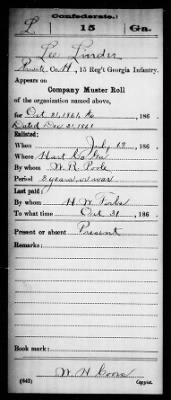 Confederate.
L 15 Ga.
Lee Linder
Co. H, 15 Reg't Georgia Infantry.
Appears on
Company Muster Roll
of the organization named above,
for Oct 31, 1861, to, 186 .
Dated Dec 31, 1861
Enlisted:
When July 13, 186 .
Where Hart Co Ga
By whom W. R. Poole
Period 3 years or war
Last paid:
By whom H. W.
To what time Oct 31, 186 .
Present or absent Present
Remarks:
Book mark:
W. H.
(642) Copyist.